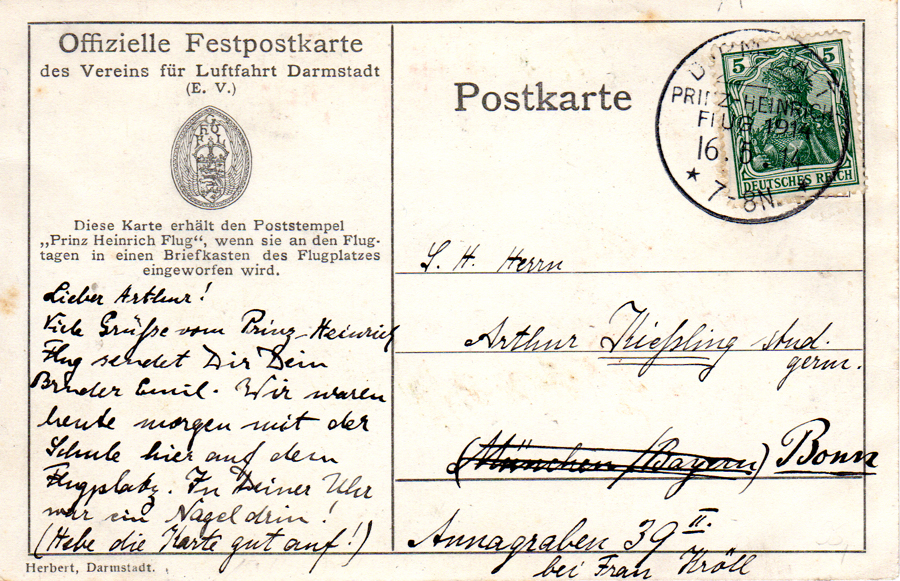 Offizielle Festpostkarte
des Vereins für Luftfahrt Darmstadt
(E. V.)
Diese Karte erhält den Poststempel
„Prinz Heinrich Flug“, wenn sie an den Flug-
tagen in einen Briefkasten des Flugplatzes
eingeworfen wird.
Lieber Arthur!
Viele Grüße vom Prinz-Heinrich
Flug sendet Dir Dein
Bruder Emil. Wir waren
heute morgen mit der
Schule hier auf dem
Flugplatz. In Deiner Uhr
war ein Nagel drin!
(Hebe die Karte gut auf!)
Herbert, Darmstadt.
Postkarte
PRINZ-HEINRICH
FLUG 1914
16.5.14
★ 7-8N. ★
5 5
DEUTSCHES REICH
S. H. Herrn
Arthur Kießling stud.
germ.
(München (Bayern) Bonn
Annagraben 39 II.
bei Frau Kröll